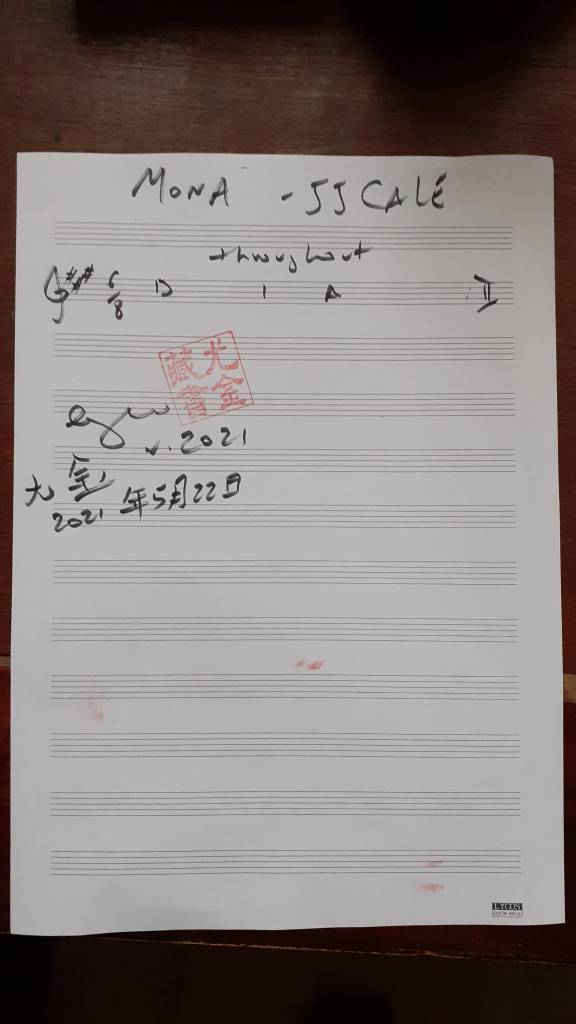 MONA - JJ CALÉ
throughout
6/8 D | A
尤金藏書
v. 2021
尤金
2021年5月22日
LYCOS